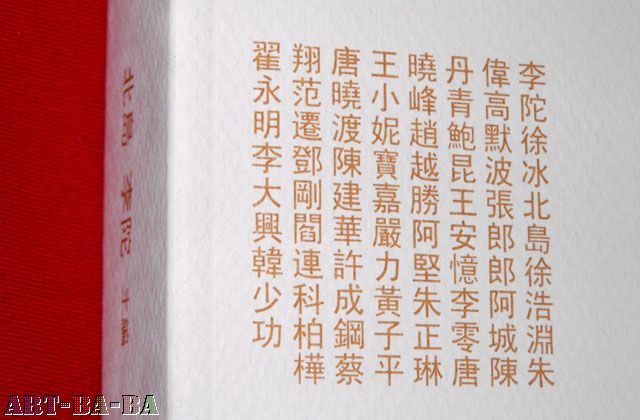 李陀徐冰北島徐浩淵朱
偉高默波張郎郎阿城陳
丹青鮑昆王安憶李零唐
曉峰趙越勝阿堅朱正琳
王小妮寶嘉嚴力黃子平
唐曉渡陳建華許成鋼蔡
翔范遷鄧剛閻連科柏樺
翟永明李大興韓少功
北島 李陀 主編
ART-BA-BA